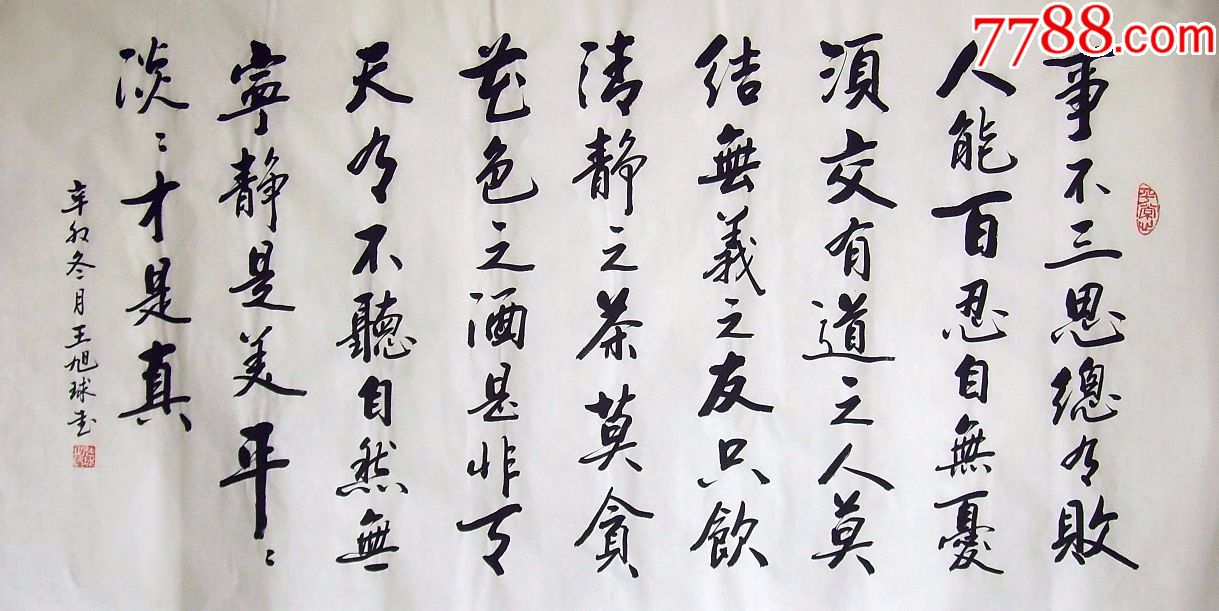 7788.com
事不三思總有敗
人能百忍自無憂
須交有道之人莫
結無義之友只飲
清靜之茶莫貪
花色之酒是非天
天有不聽自然無
寧靜是美平〻
淡〻才是真
辛卯冬月王旭球書